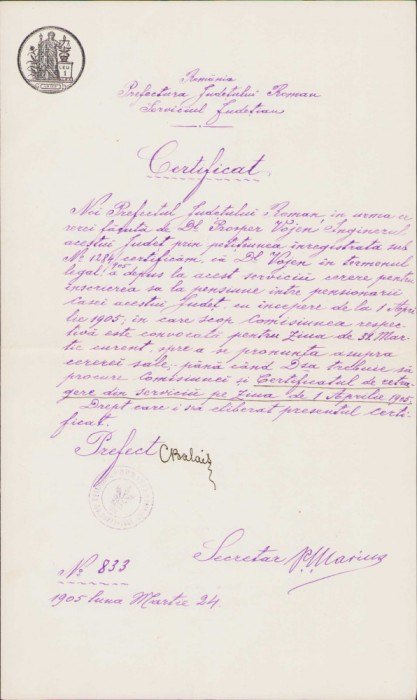 România
Prefectura Judetului Roman
Serviciul Judetian
Certificat
Noi Prefectul Judetului Roman, in urma ce
rerei făcută de Dl Prosper Vojen Inginerul
acestui Judet prin petitiunea inregistrata sub
No 1284 certificăm, că Dl Vojen in termenul
legal, a depus la acest serviciu cerere pentru
inscrierea sa la pensiune intre pensionarii
Casei acestui Judet, cu incepere de la 1 Apri
lie 1905, in care scop Comisiunea respec
tivă este convocată pentru ziua de Mar
tie curent, spre a se pronunta asupra
cererei sale, până când Dsa trebue să
procure Comisiunei și Certificatul de retra
gere din serviciu pe ziua de 1 Aprilie 1905.
Drept care i s'a eliberat presentul certi
ficat.
Prefect
Secretar
No 833
1905 luna Martie 24